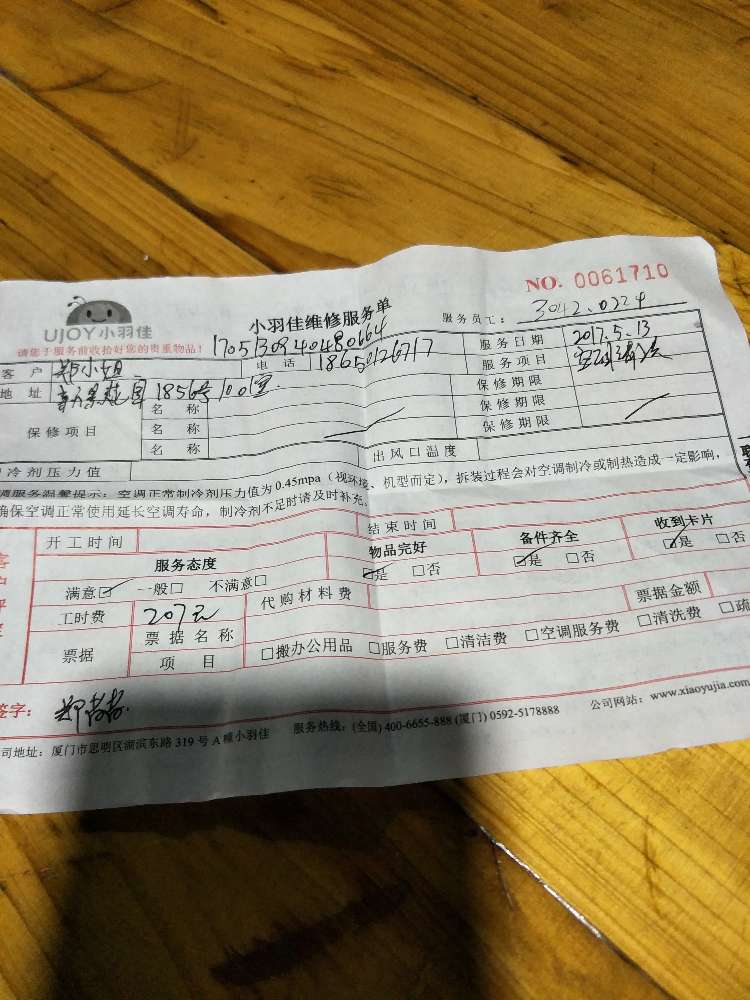 NO. 0061710
UJOY小羽佳
小羽佳维修服务单
服务员工: 3042.0224
请您于服务前收拾好您的贵重物品!
1705130940480664
客户 郑小姐 电话 18650126717 服务日期 2017.5.13
地址 1856号 100室 服务项目 空调清洗
保修项目 名称 保修期限
名称 保修期限
名称 保修期限
冷剂压力值 出风口温度
调服务温馨提示: 空调正常制冷剂压力值为0.45mpa(视环境、机型而定),拆装过程会对空调制冷或制热造成一定影响,
确保空调正常使用延长空调寿命,制冷剂不足时请及时补充。
开工时间 结束时间
服务态度 物品完好 备件齐全 收到卡片
满意☑ 一般□ 不满意□ ☑是 □否 ☑是 □否 ☑是 □否
工时费 207元 代购材料费 票据金额
票据 票据名称 □搬办公用品 □服务费 □清洁费 □空调服务费 □清洗费 □疏
项目
签字: 郑
司地址: 厦门市思明区湖滨东路319号A幢小羽佳 服务热线: (全国) 400-6655-888 (厦门) 0592-5178888 公司网站: www.xiaoyujia.com